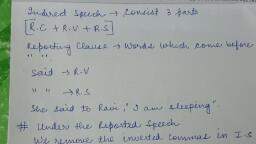 Indirect Speech → Consist 3 parts
[R.C + R.V + R.S]
Reporting Clause → Words which come before
" "
Said → R.V
" " → R.S
She said to Ravi, "I am sleeping".
# Under the Reported Speech
We remove the inverted commas in I.S